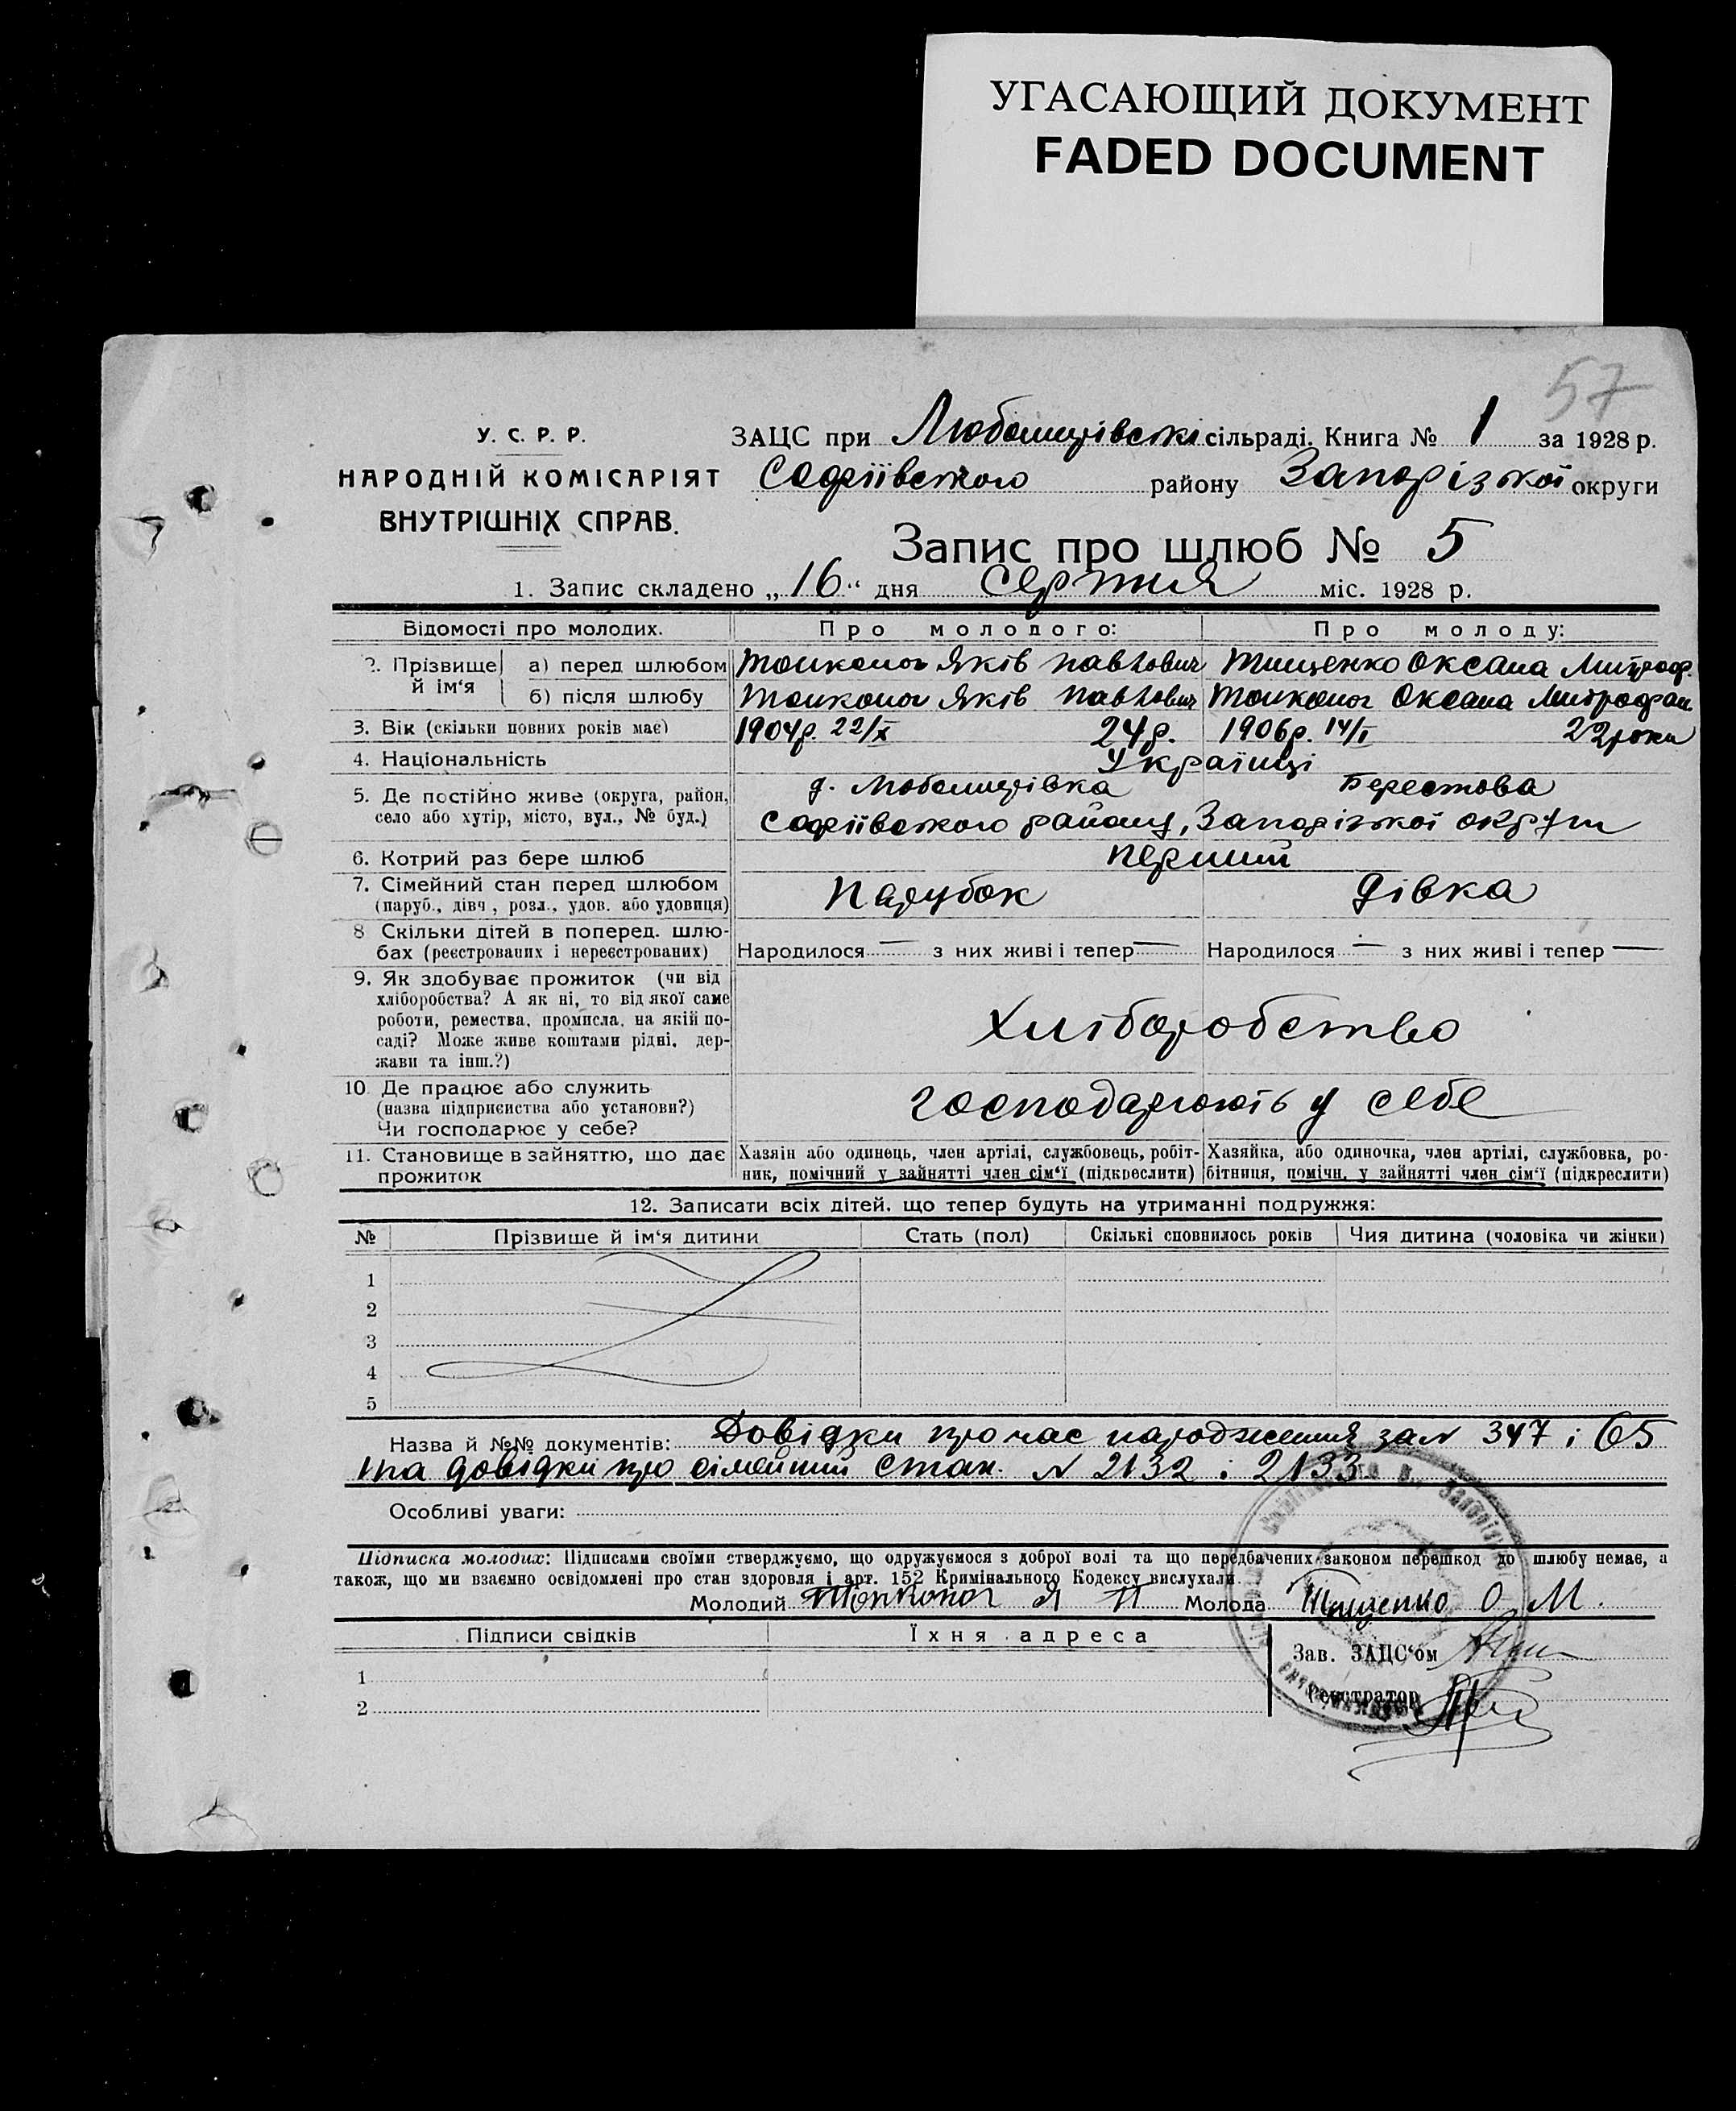 УГАСАЮЩИЙ ДОКУМЕНТ
FADED DOCUMENT
57
У. С. Р. Р.
НАРОДНІЙ КОМІСАРІЯТ
ВНУТРІШНІХ СПРАВ.
ЗАЦС при Любомирівські сільраді. Книга № 1 за 1928 р.
Софіївського району Запорізької округи
Запис про шлюб № 5
1. Запис складено „16“ дня серпня міс. 1928 р.
Відомості про молодих. Про молодого: Про молоду:
2. Прізвище й ім‘я а) перед шлюбом Тонконог Яків Павлович Тищенко Оксана Митроф.
б) після шлюбу Тонконог Яків Павлович Тонконог Оксана Митрофан.
3. Вік (скільки повних років має) 1904р. 22/X 24р. 1906р. 14/I 22 роки
4. Національність Українці
5. Де постійно живе (округа, район, село або хутір, місто, вул., № буд.) д. Любомирівка Берестова
Софіївського району, Запорізької округи
6. Котрий раз бере шлюб перший
7. Сімейний стан перед шлюбом (паруб., дівч., розл., удов. або удовиця) Парубок дівка
8 Скільки дітей в поперед. шлюбах (реєстрованих і нереєстрованих) Народилося — з них живі і тепер — Народилося — з них живі і тепер —
9. Як здобуває прожиток (чи від
хліборобства? А як ні, то від якої саме
роботи, ремества, промисла, на якій по-
саді? Може живе коштами рідні, дер-
жави та інш.?)
Хліборобство
10 Де працює або служить
(назва підприємства або установи?)
Чи господарює у себе?
господарюють у себе
11. Становище в зайняттю, що дає прожиток
Хазяін або одинець, член артілі, службовець, робіт-
ник, помічний у зайнятті член сім‘ї (підкреслити)
Хазяйка, або одиночка, член артілі, службовка, ро-
бітниця, помічн. у зайнятті член сім‘ї (підкреслити)
12. Записати всіх дітей, що тепер будуть на утриманні подружжя:
№ Прізвище й ім‘я дитини Стать (пол) Скількі сповнилось років Чия дитина (чоловіка чи жінки)
1
2
3
4
5
Назва й №№ документів: Довідки про час народження за № 347 і 65
та довідки про сімейний стан. № 2132 і 2133
Особливі уваги:
Підписка молодих: Підписами своїми стверджуємо, що одружуємося з доброї волі та що передбачених законом перешкод до шлюбу немає, а
також, що ми взаємно освідомлені про стан здоровля і арт. 152 Кримінального Кодексу вислухали.
Молодий Тонконог Я П Молода Тищенко О М.
Підписи свідків Їхня адреса
Зав. ЗАЦС‘ом
1
Реєстратор
2